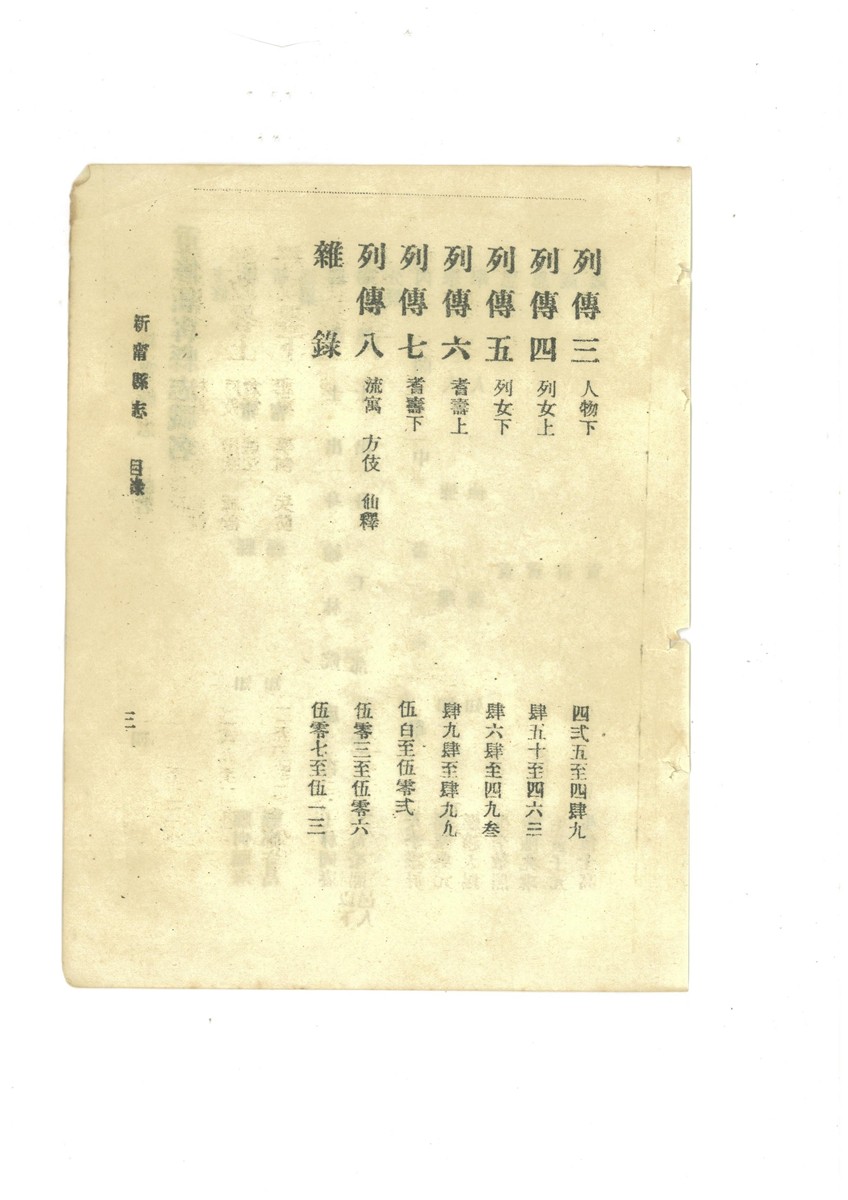 列傳三 人物下 四弍五至四肆九
列傳四 列女上 肆五十至四六三
列傳五 列女下 肆六肆至四九叁
列傳六 耆壽上 肆九肆至肆九九
列傳七 耆壽下 伍白至伍零弍
列傳八 流寓 方伎 仙釋 伍零三至伍零六
雜錄 伍零七至伍一三
新甯縣志 目錄 三